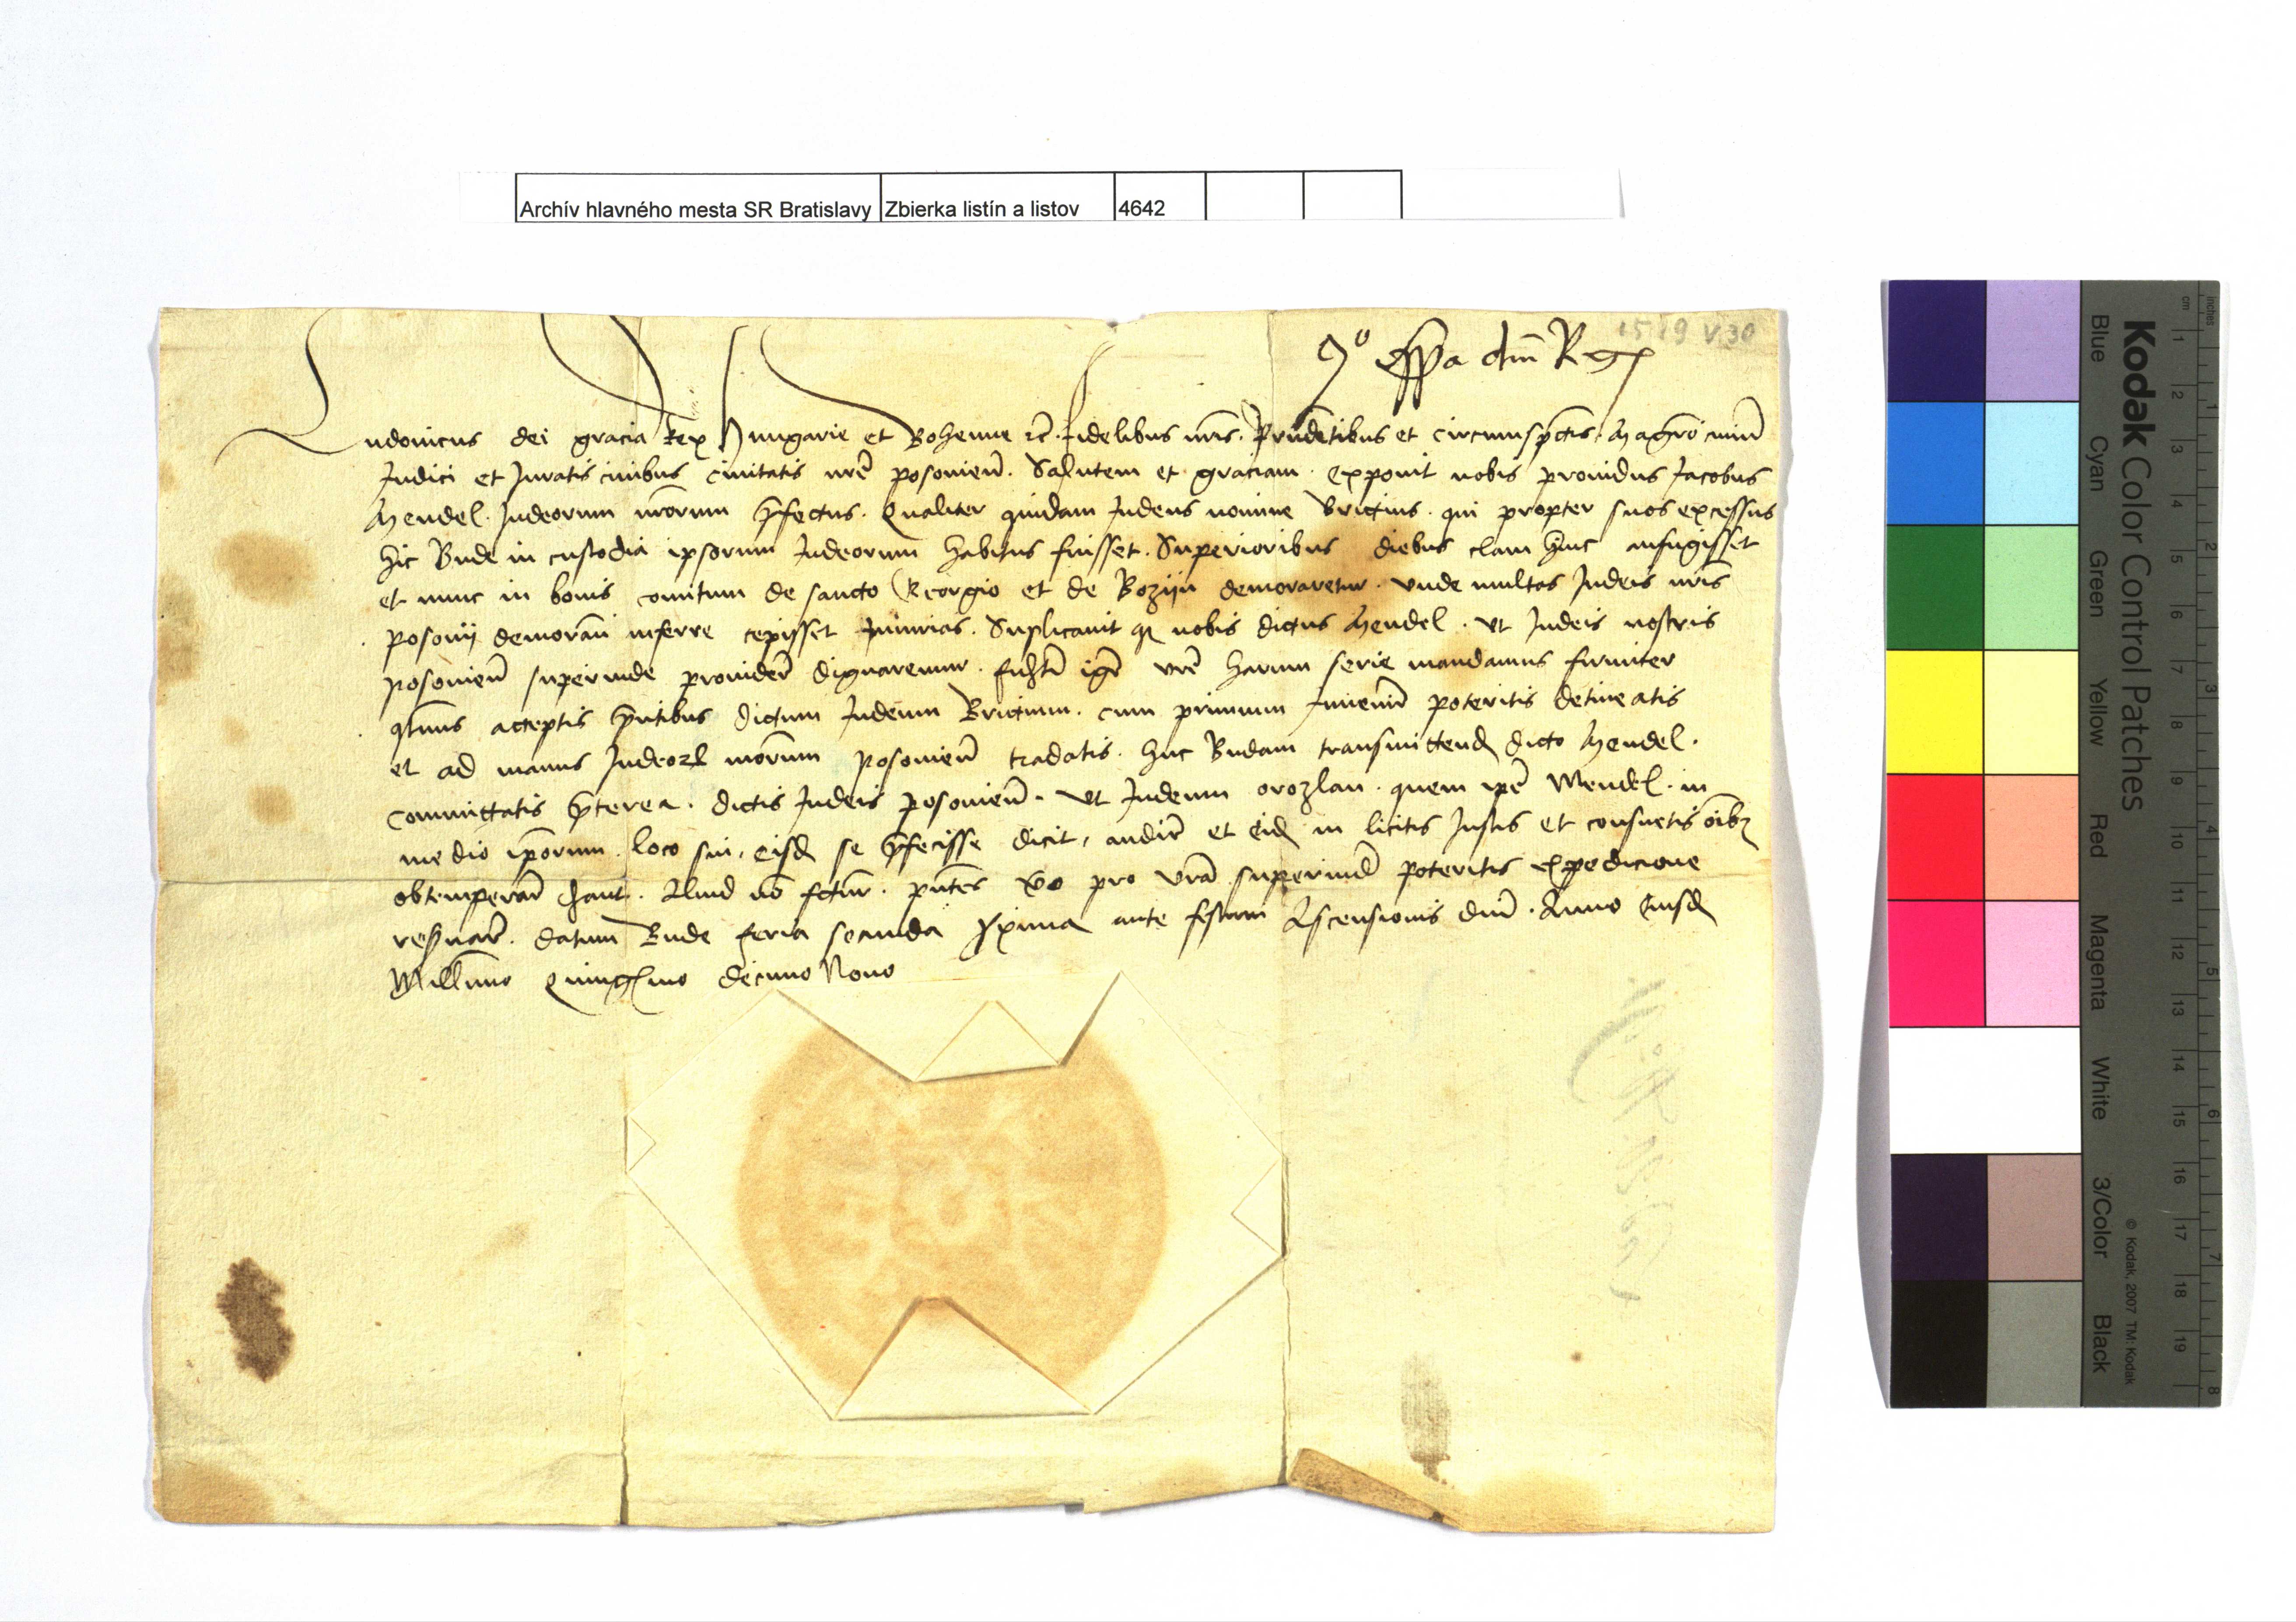 Archív hlavného mesta SR Bratislavy Zbierka listín a listov 4642
1519 V 30
dm̄ Reg
Ludouicus dei gracia Rex Hungarie et Bohemie ⁊c̄. fidelibus nr̄is. Prudētibus et circumspectis. Magr̄o ciuiū
Judici et Juratis ciuibus ciuitatis nr̄e posonien̄. Salutem et graciam. Exponit nobis prouidus Jacobus
Mendel. Judeorum nr̄orum p̄fectus. Qualiter quidam Judeus nomine Brictius. qui propter suos excessus
hic Bude in custodia ipsorum Judeorum habitus fuisset. Superioribus diebus clam hinc aufugisset
et nunc in bonis comitum de sancto Georgio et de Bozijn demoraretur. vnde multas Judeis nr̄is
posonij demoran̄ inferre cepisset Iniurias. Suplicauit q nobis dictus Mendel. vt Judeis nostris
posonien̄ superinde prouider̄ dignaremur. igr̄ vr̄e harum serie mandamus firmiter
qtinus acceptis p̄ntibus dictum Judeum Brictium. cum primum Inuenir̄ poteritis detineatis
et ad manus Judeoꝝ nr̄orum posonien̄ tradatis. huc Budam transmittend dicto Mendel.
committatis p̄terea. dictis Judeis posonien̄. vt Judeum orozlan. quem ip̄e Mendel. in
medio ip̄orum. loco sui. eisd se p̄fecisse dicit, audir̄ et eid in licitis Justis et consuetis oībꝫ
obtemperar̄ . Aliud nō fctur̄. pn̄tes v̄o pro vr̄a superind poteritis expedicione
reseruar̄. datum Bude feria secunda proxima ante festum Ascensionis dnī. Anno eiusd
Millīmo Quingmo decimo Nono
Kodak Color Control Patches
© Kodak, 2007 TM: Kodak
Blue Cyan Green Yellow Red Magenta White 3/Color Black
inches 1 2 3 4 5 6 7 8
cm 1 2 3 4 5 6 7 8 9 10 11 12 13 14 15 16 17 18 19